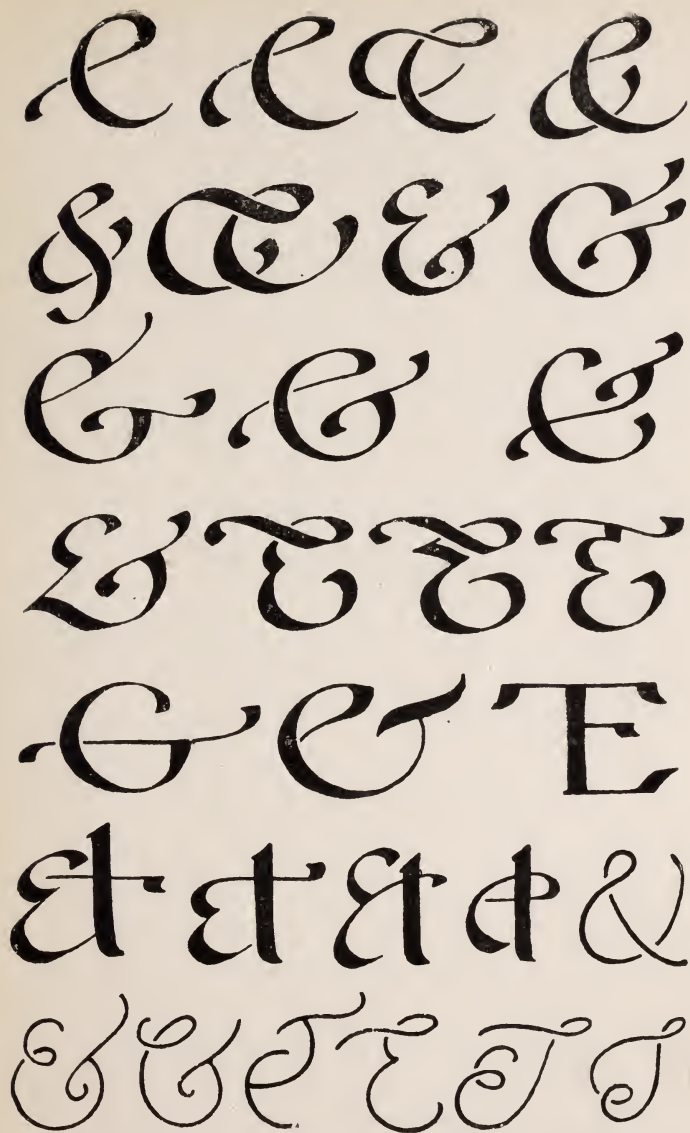 & & & &
& & & &
& & &
& & & &
& & &
& & & & &
& & & & & &